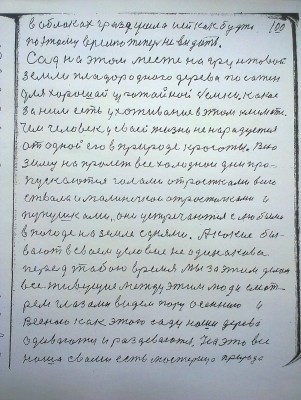 в облаках раздушила нет как будто 100
поэтому время теперь не видать.
Сад на этом месте на грунтовой
земли плодородного дерева по сетин
для хорошей урожайной семки, какое
за ним есть ухоживание в этом климате.
Чем человек у своей жизни не нарадуется
от одной его в природе красоты. В но
зиму на пролет все холодной дни про-
пускаются голами отростками всего
ствола и маленичком отростками и
пупушками, они устречаются с любыми
в погоде на земле с днями. А какие бы-
вают в своем условие не одинаковы
перед этабою время. Мы за этим делом
все живущие между этим люди смот-
рем глазами видем пору осеннию и
весеню как этого саду наши дерева
одеваюти и раздеваются. На это все
наша своими есть мастерица природа